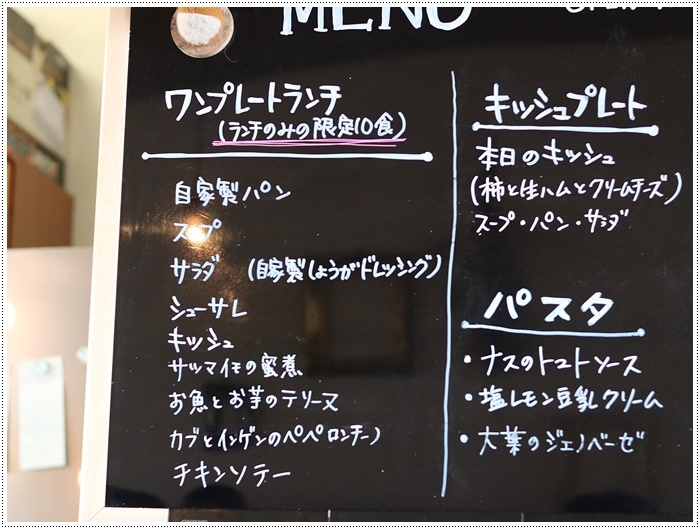 MENU
ワンプレートランチ
(ランチのみの限定10食)
自家製パン
スープ
サラダ (自家製しょうがドレッシング)
シューサレ
キッシュ
サツマイモの蜜煮
お魚とお芋のテリーヌ
カブとインゲンのペペロンチーノ
チキンソテー
キッシュプレート
本日のキッシュ
(柿と生ハムとクリームチーズ)
スープ・パン・サラダ
パスタ
・ナスのトマトソース
・塩レモン豆乳クリーム
・大葉のジェノベーゼ